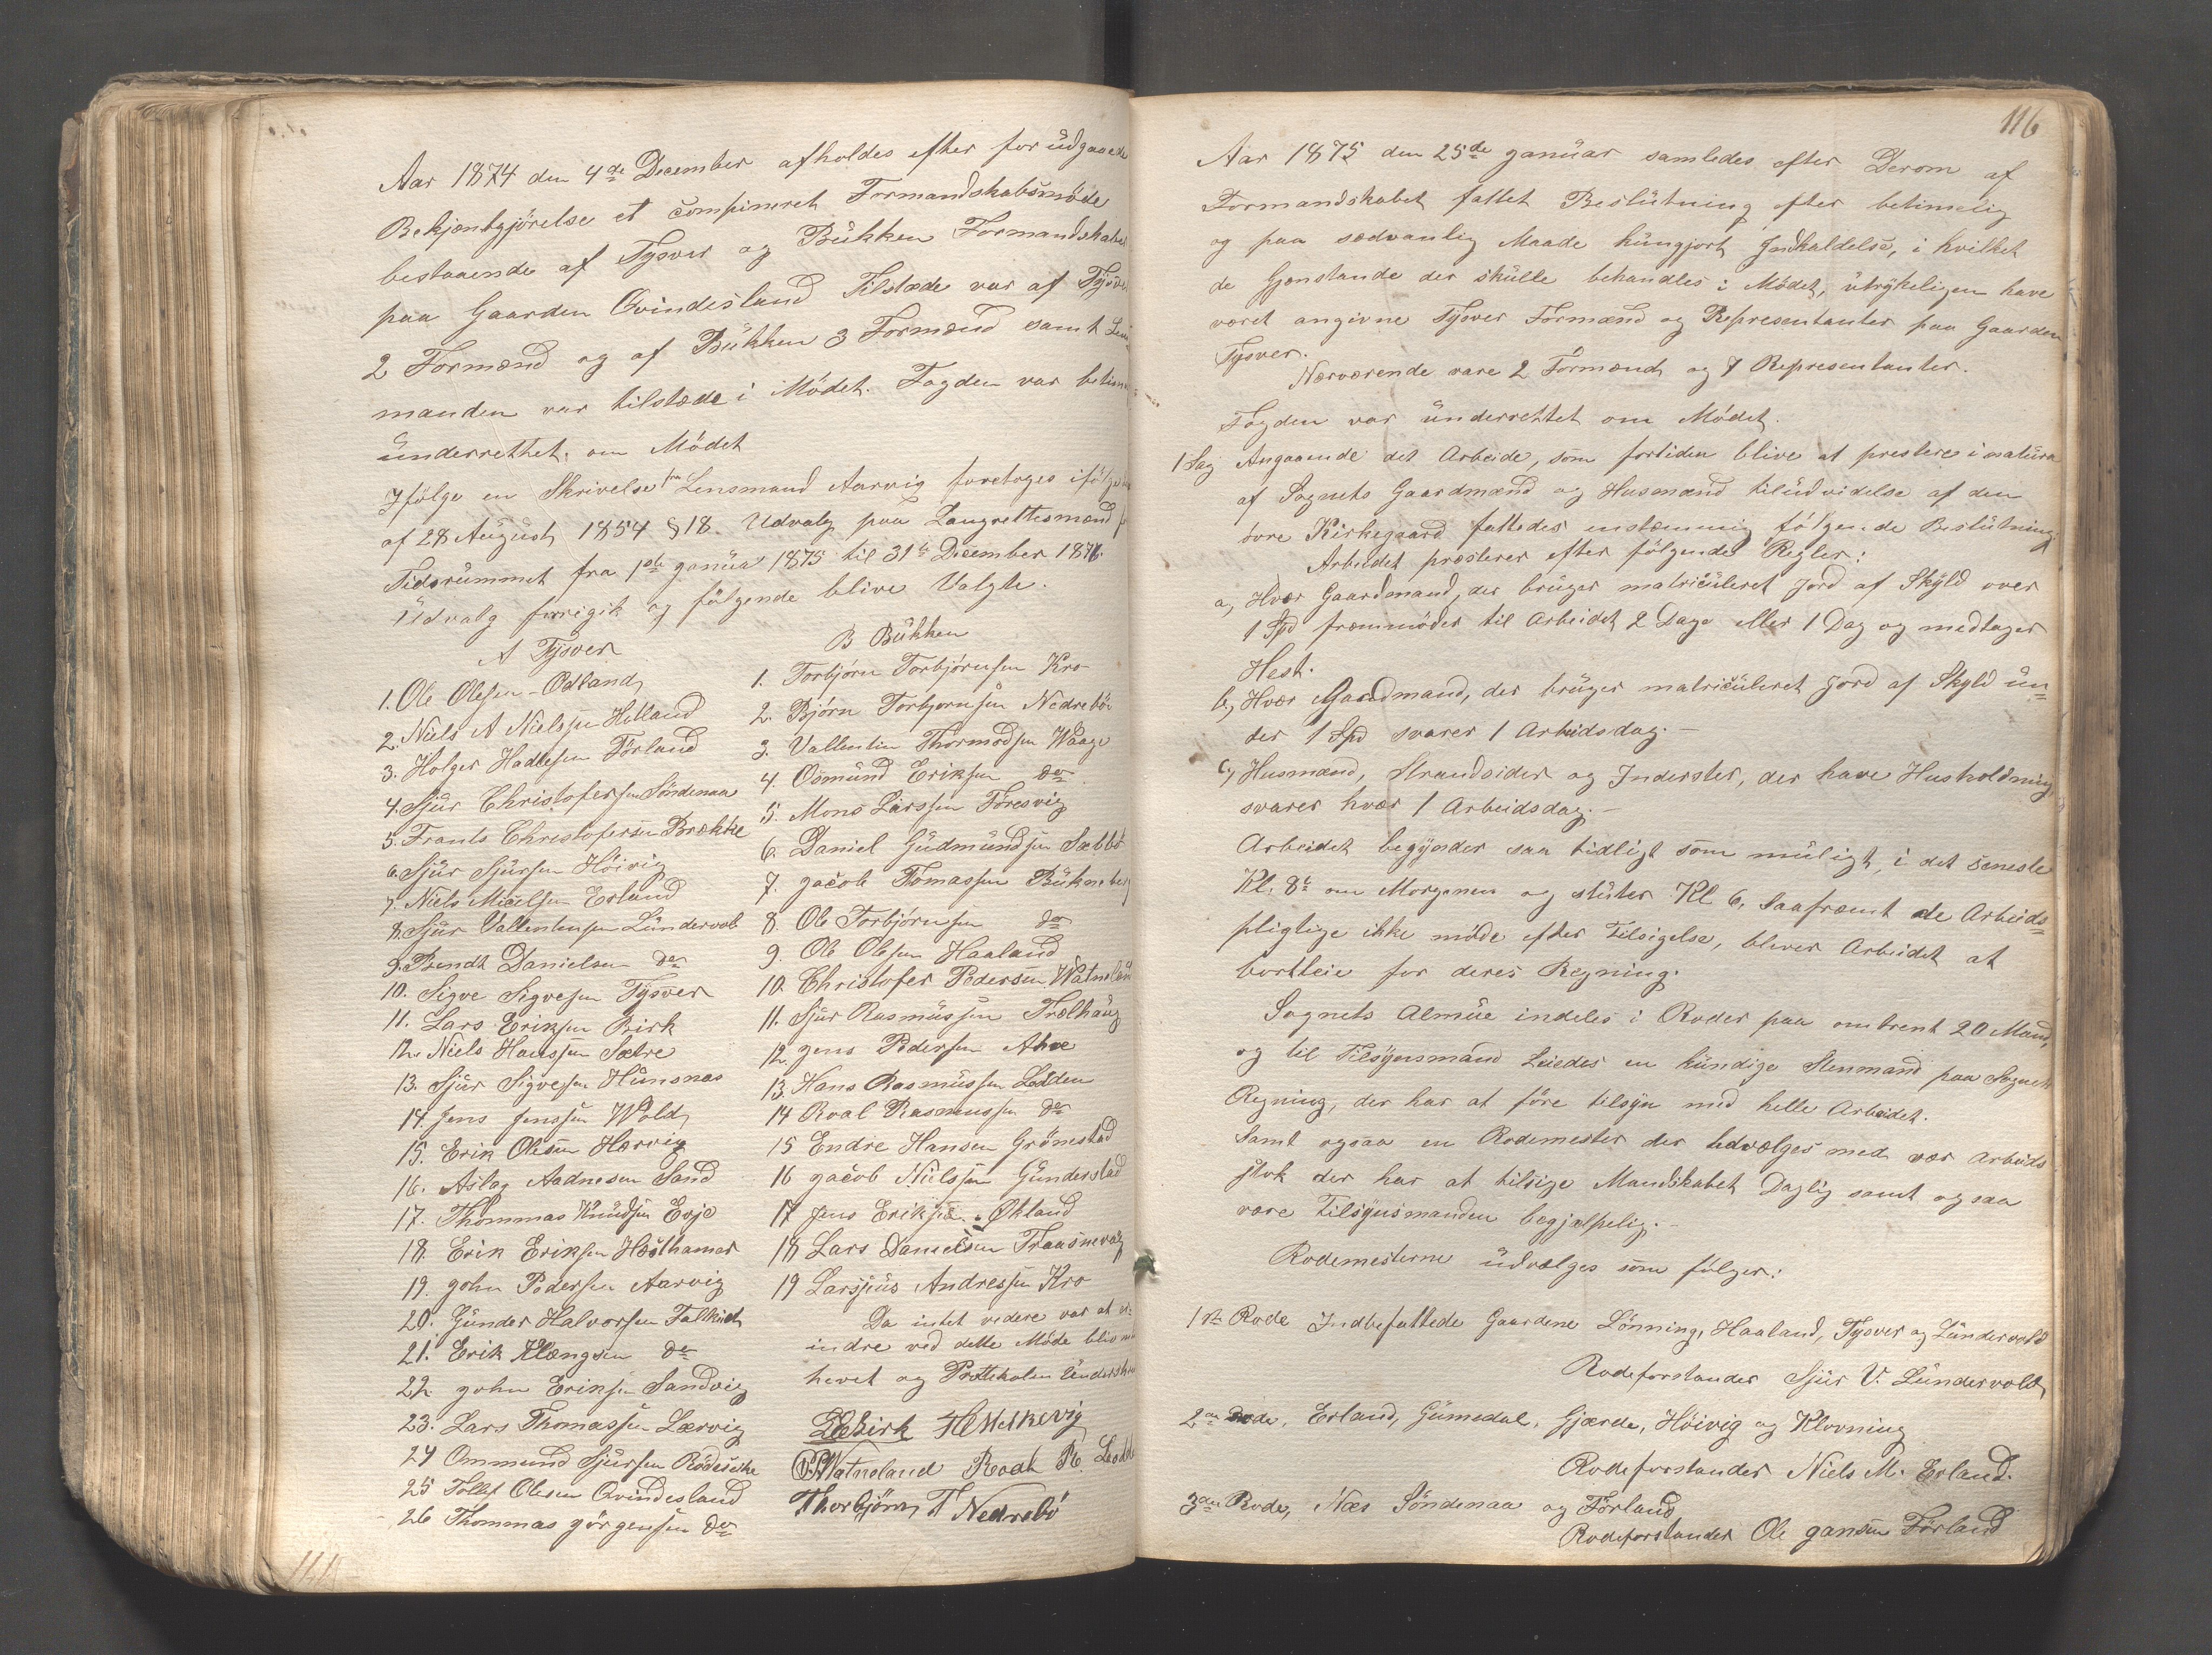 Aar 1874 den 4de December afholdes efter forüdgaaende
Bekjentgjörelse et Compineret Formandskabsmöde
bestaaende af Tysver og Bükken Formandskabet
paa Gaarden Qvindesland Tilstæde var af Tysver
2 Formænd og af Bükken 3 Formænd samt
manden var tilstæde i Mödet. Fogden var betim
ünderrettet. om Mödet
Ifölge en Skrivelse fra Lensmand Aarvig foretoges ifölge
af 28 August 1854 § 18. Udvalg paa Laugrettesmænd
Tidsrümmet fra 1ste janüa 1875 til 31te December 1876.
Üdvalg foregik og fölgende blive Valgte.
A Tysver
1. Ole Olesen Odland
2. Niels A Nielssen Helland
3. Holger Hadlesen Förland
4. Sjür Christofersen Söndenaa
5. Frants Christofersen Brække
6. Sjür Sjürsen Höivig
7. Niels Micelsen Erland
8. Sjür Vallentinsen Lündervold
9. Bendt Danielsen do
10. Sigve Sigvesen Tysver
11. Lars Eriksen Birk
12. Niels Hanssen Sætre
13. Sjür Sigvesen Hünsnæs
14. Jens Jenssen Wold
15. Erik Olesen Hærvig
16. Aslag Aadnesen Sand
17. Thommas Knüdsen Evje
18. Erik Eriksen Hæsthamar
19. John Pedersen Aarvig
20. Günder Halvorsen Falkeid
21. Erik Klængsen do
22. John Eriksen Sandvig
23. Lars Thomassen Lærvig
24 Ommund Sjürsen
25 Tollef Olesen Qvindesland
26 Thommas Jörgensen do
B Bükken
1. Torbjörn Torbjörnsen Kro
2. Björn Torbjornsen Nedrebö
3. Vallentin Thormodsen Waage
4. Osmünd Eriksen do
5. Mons Larssen Föresvig
6. Daniel Güdmündsen Sæbbö
7. Jacob Tomassen Bükneberg
8. Ole Torbjörnsen do
9. Ole Olesen Haaland
10. Christofer Pedersen Watneland
11. Sjür Rasmüssen Trælhaug
12. Jens Pedersen
13. Hans Rasmüssen Lodden
14 Roal Rasmussen do
15 Endre Hansen Grönestad
16 Jacob Nielssen Günderstad
17 Jens Eriksen Økland
18 Lars Danielsen
19 Larsjüs Andressen Kro
Da intet videre var at er-
indre ved dette Möde blev
hevet og Prottekolen ünderskre
LEBirk HHetkevig
CPWatneland Roald R. Lodden
Thorbjörn T Nedrebö
116
Aar 1875 den 25de Janüar samledes efter Derom af
Formandskabet fattet Beslütning efter betimelig
og paa sedvanlig Maade küngjort Indkaldelse, i hvilket
de Gjenstande der skülle behandles i Mödet, ütrykeligen have
været angivne Tysver Formænd og Representanter paa Gaarden
Tysver.
Nærværende vare 2 Formænd og 7 Representanter.
Fogden var ünderrettet om Mödet.
1 Sag Angaaende det Arbeide, som fortiden blive at prestere i natüra
af Sognets Gaardmænd og Husmænd tilüdvidelse af den
övre Kirkegaard fattedes enstemmig fölgende Beslütning.
Arbeidet præsterer efter fölgende Regler:
a, Hver Gaardmand, der brüger matricüleret Jord af Skyld over
1 Spd fremmöder til Arbeidet 2 Dage eller 1 Dag og medtager
Hest.
b, Hver Gaardmand, der brüger matricüleret Jord af Skyld ün-
der 1 Spd svarer 1 Arbeidsdag.
c, Husmænd, Strandsider og Inderster, der have Husholdning
svarer hver 1 Arbeidsdag.
Arbeidet begynder saa tidligt som müligt, i det seneste
Kl. 8te om Morgenen og slüter Kl 6. Saafremt de Arbeids-
pligtige ikke möde efter Tilsigelse, bliver Arbeidet at
bortleie for deres Regning.
Sognets Almüe indeles i Roder paa ombrent 20 Mand,
og til Tilsynsmand Leiedes en kündige Stenmand paa Sognets
Regning, der har at före tilsyn med helle Arbeidet.
Samt ogsaa en Rodemester der üdvælges med vær Arbeids
flok der har at tilsige Mandskabet Daglig samt ogsaa
være Tilsynsmanden begjælpelig.
Rodemesterne üdvælges som fölger:
1ste Rode Indbefattede Gaardene Lönning, Haaland, Tysver og Lündervold
Rodeforstander Sjür V. Lündervold
2den Rode, Erland, Gümedal, Gjærde, Höivig og Klovning
Rodeforstander Niels M. Erland.
3den Rode, Næs Söndenaa og Förland
Rodeforstander Ole Jansen Förland